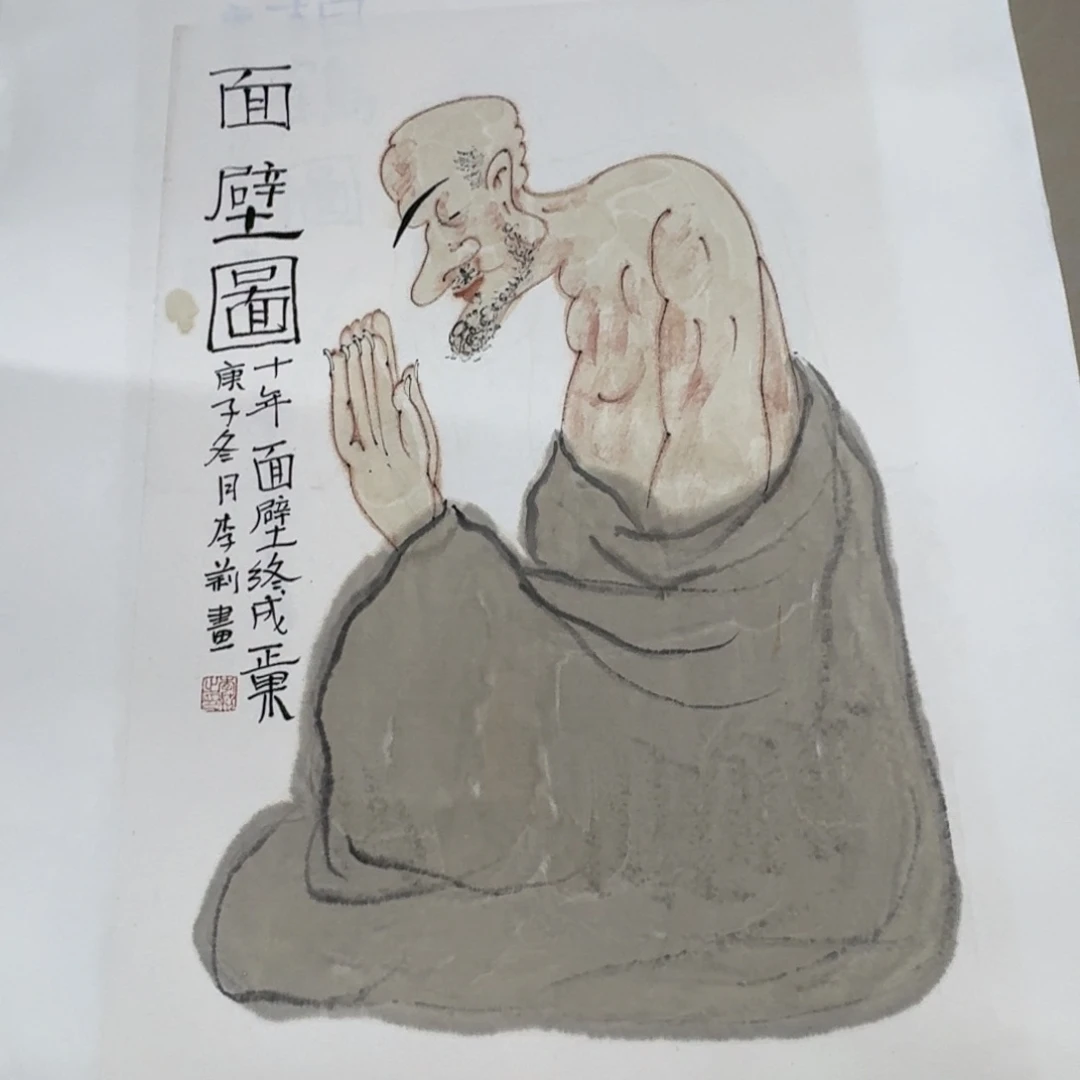 面壁圖
十年面壁终成正果
庚子冬月李莉畫